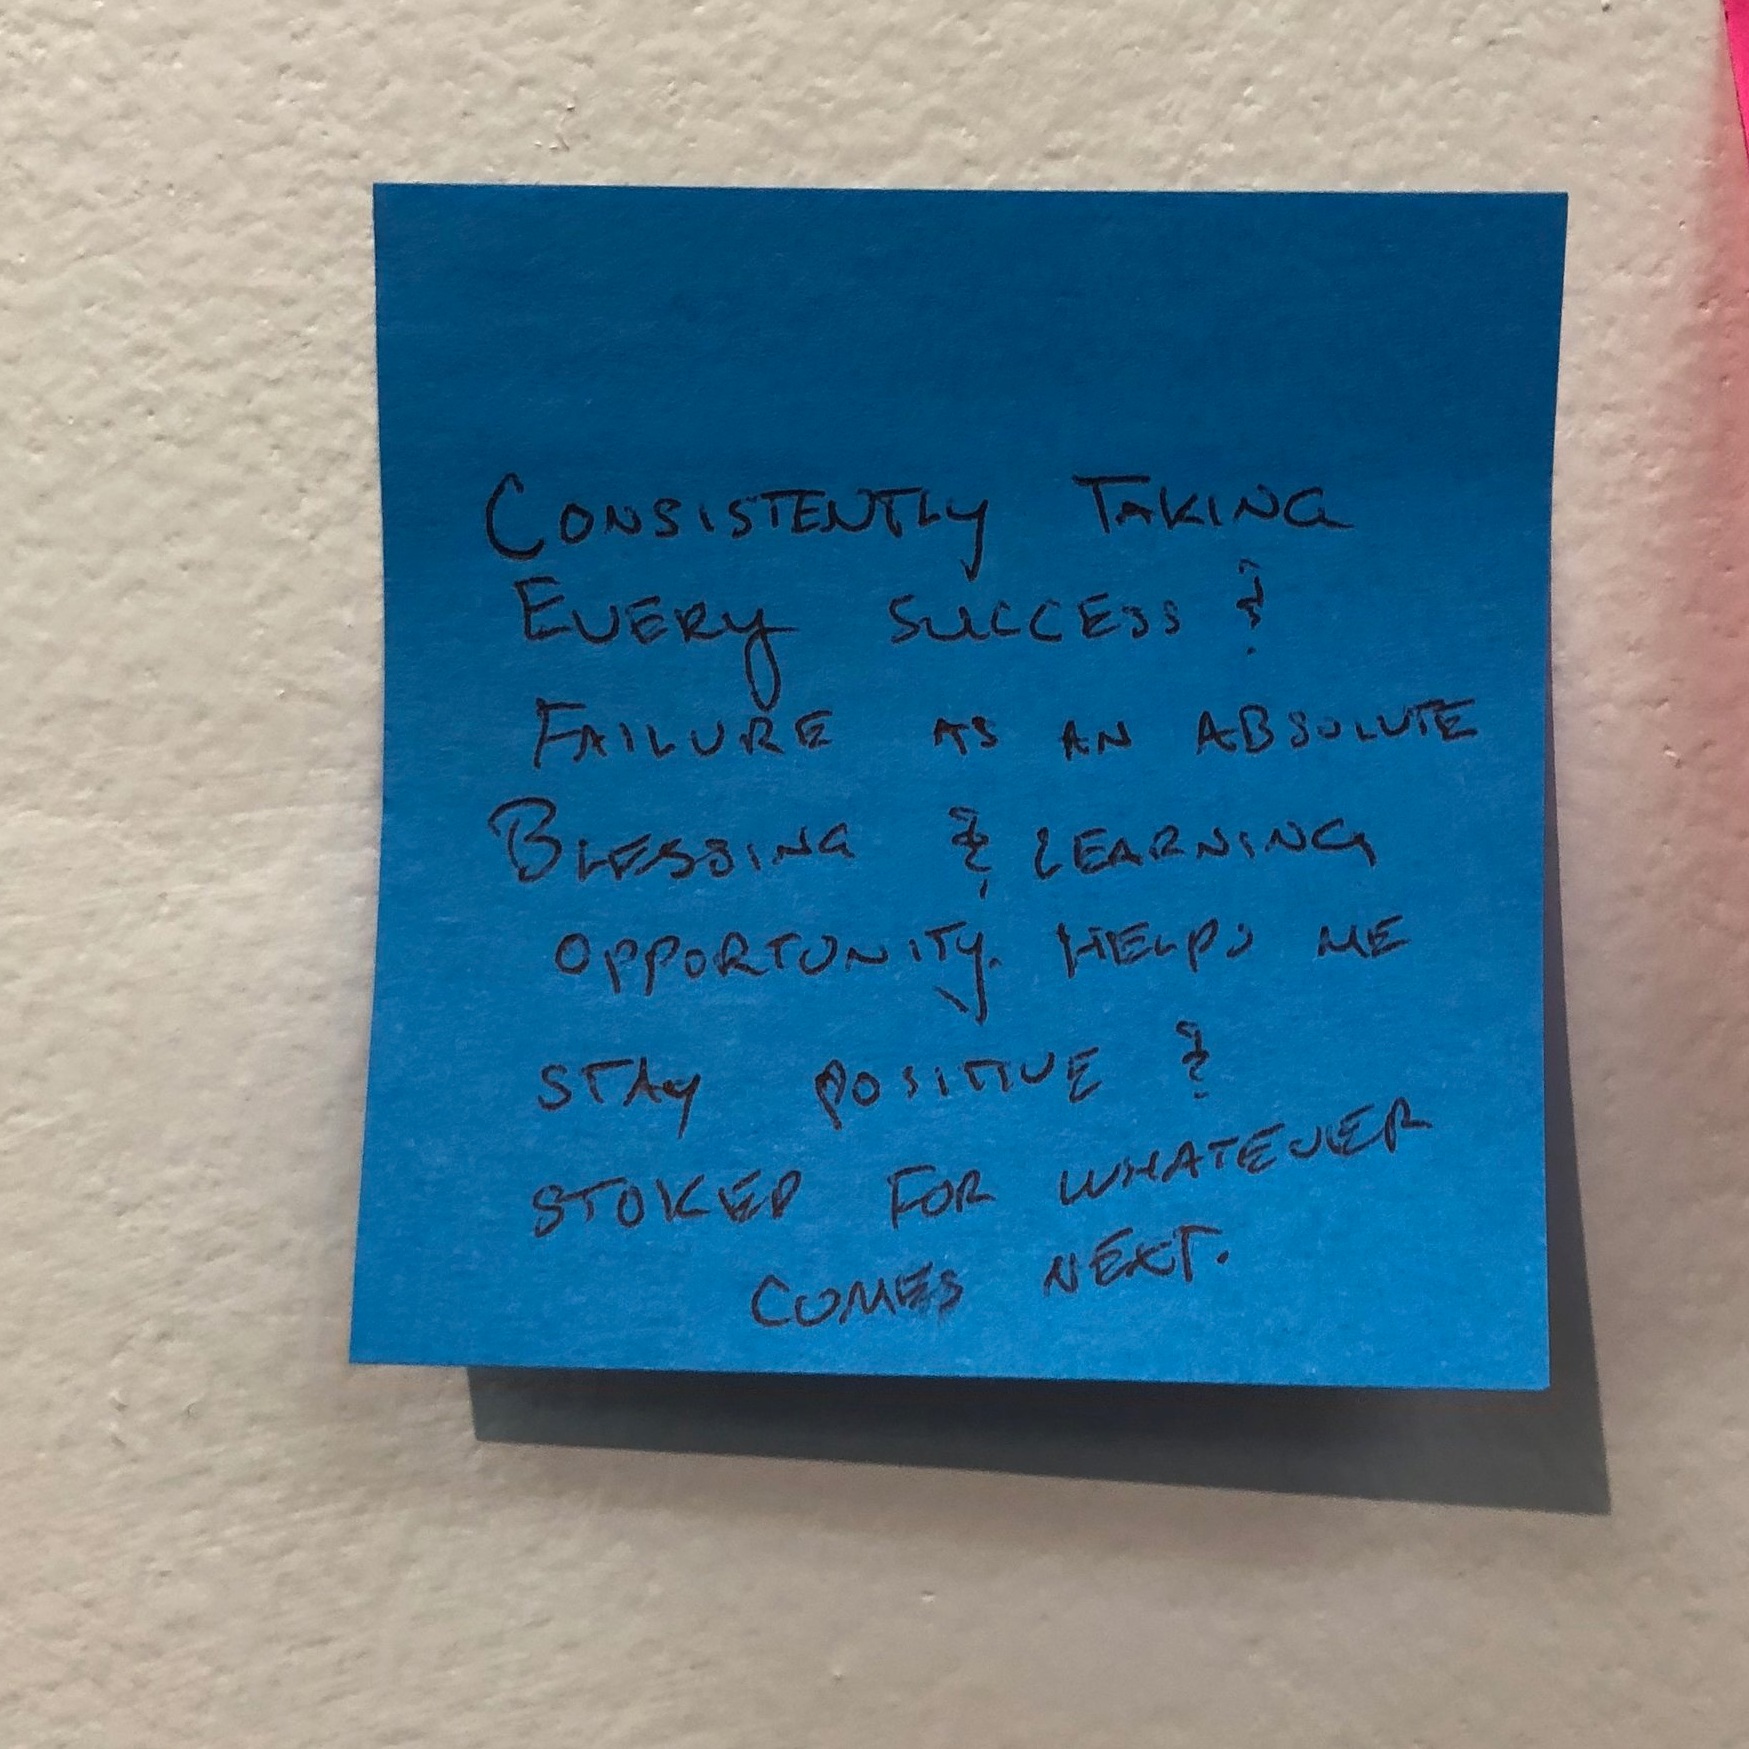 CONSISTENTLY TAKING
EVERY SUCCESS &
FAILURE AS AN ABSOLUTE
BLESSING & LEARNING
OPPORTUNITY. HELPS ME
STAY POSITIVE &
STOKED FOR WHATEVER
COMES NEXT.